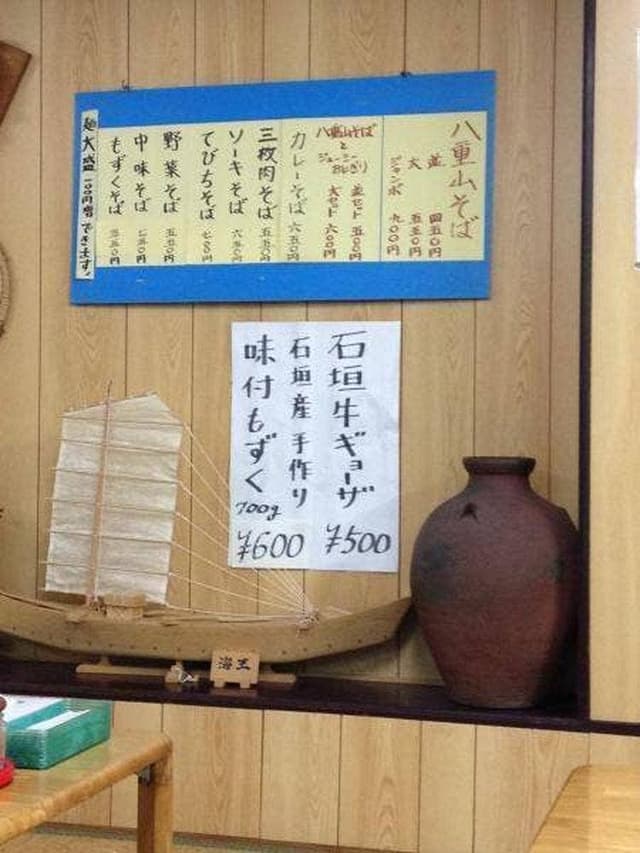 八重山そば
並 四五〇円
大 五五〇円
ジャンボ 九〇〇円
八重山そば
と
ジューシー
おにぎり
並セット 五〇〇円
大セット 六〇〇円
カレーそば 六五〇円
三枚肉そば 五五〇円
ソーキそば 六五〇円
てびちそば 七〇〇円
野菜そば 五五〇円
中味そば 七五〇円
もずくそば 五五〇円
麺大盛 一〇〇円増できます。
石垣牛ギョーザ
¥500
石垣産 手作り
味付もずく
700g
¥600
海王